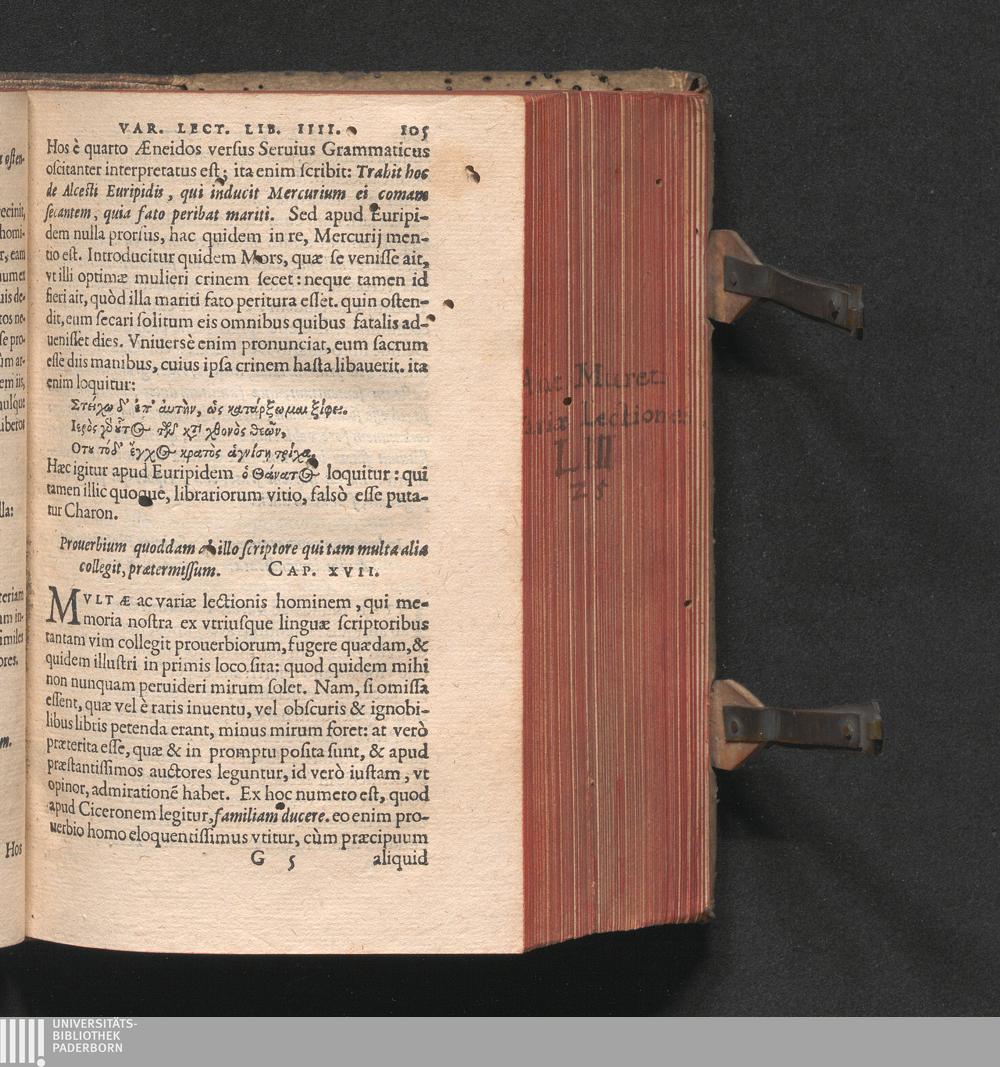 VAR. LECT. LIB. IIII. 105
Hos è quarto Æneidos versus Seruius Grammaticus
oscitanter interpretatus est; ita enim scribit: Trahit hoc
de Alcesti Euripidis, qui inducit Mercurium ei comam
secantem, quia fato peribat mariti. Sed apud Euripi-
dem nulla prorsus, hac quidem in re, Mercurij men-
tio est. Introducitur quidem Mors, quæ se venisse ait,
vt illi optimæ mulieri crinem secet: neque tamen id
fieri ait, quòd illa mariti fato peritura esset. quin osten-
dit, eum secari solitum eis omnibus quibus fatalis ad-
uenisset dies. Vniuersè enim pronunciat, eum sacrum
esse diis manibus, cuius ipsa crinem hasta libauerit. ita
enim loquitur:
Στείχω δ' ἐπ' αὐτὴν, ὡς κατάρξωμαι ξίφει.
Ιερὸς γὸ οὗτος τῶν κτ χθονὸς θεῶν,
Οτου τόδ' ἔγχος κρατὸς ἁγνίσῃ τρίχα.
Hæc igitur apud Euripidem ὁ Θάνατος loquitur: qui
tamen illic quoque, librariorum vitio, falsò esse puta-
tur Charon.
Prouerbium quoddam ab illo scriptore qui tam multa alia
collegit, prætermissum. CAP. XVII.
MVLTÆ ac variæ lectionis hominem, qui me-
moria nostra ex vtriusque linguæ scriptoribus
tantam vim collegit prouerbiorum, fugere quædam, &
quidem illustri in primis loco sita: quod quidem mihi
non nunquam peruideri mirum solet. Nam, si omissa
essent, quæ vel è raris inuentu, vel obscuris & ignobi-
libus libris petenda erant, minus mirum foret: at verò
præterita esse, quæ & in promptu posita sunt, & apud
præstantissimos auctores leguntur, id verò iustam, vt
opinor, admirationē habet. Ex hoc numero est, quod
apud Ciceronem legitur, familiam ducere. eo enim pro-
uerbio homo eloquentissimus vtitur, cùm præcipuum
G 5 aliquid
Hos
Muret.
Lectiones
L III
25
UNIVERSITÄTS-
BIBLIOTHEK
PADERBORN